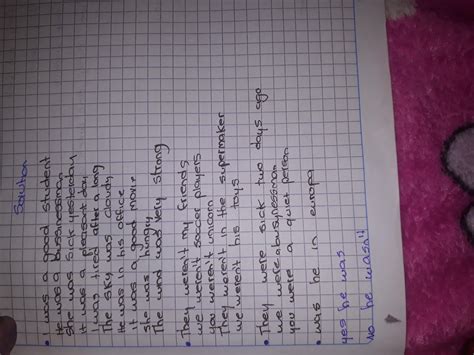 Solution
• I was a good student
He was a bussnessman
She was sick yesterday
it was a pleasent day
I was tired after a long
The sky was cloudy
He was in his office
it was a good movie
She was hungry
The wind was very strong
• They weren't my friends
we weren't soccer players
you weren't unicorn
They weren't in the supermaker
we weren't his toys
• They were sick two days ago
we were a busynessman
you were a quiet person
• was he in europa
yes he was
No he wasn't